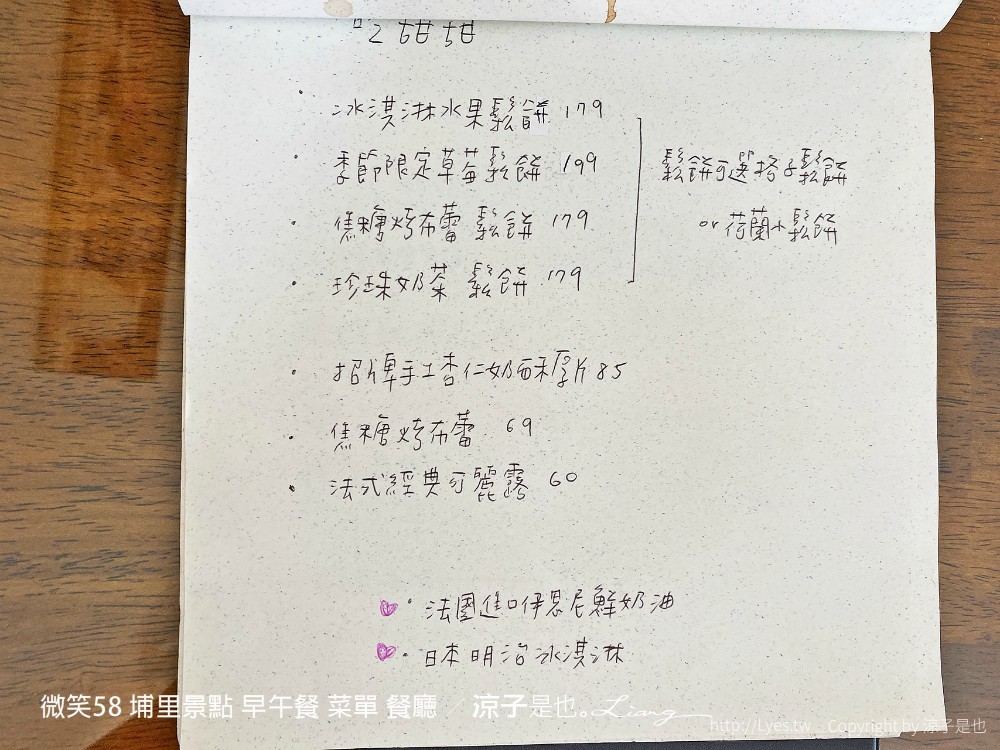 吃甜甜
· 冰淇淋水果鬆餅 179
· 季節限定草莓鬆餅 199
· 焦糖烤布蕾 鬆餅 179
· 珍珠奶茶 鬆餅 179
鬆餅可選格子鬆餅
or 荷蘭小鬆餅
· 招牌手工杏仁奶酥厚片 85
· 焦糖烤布蕾 69
· 法式經典可麗露 60
· 法國進口伊思尼鮮奶油
· 日本明治冰淇淋
微笑58 埔里景點 早午餐 菜單 餐廳 / 涼子是也。Liang
http://Lyes.tw Copyright by 涼子是也